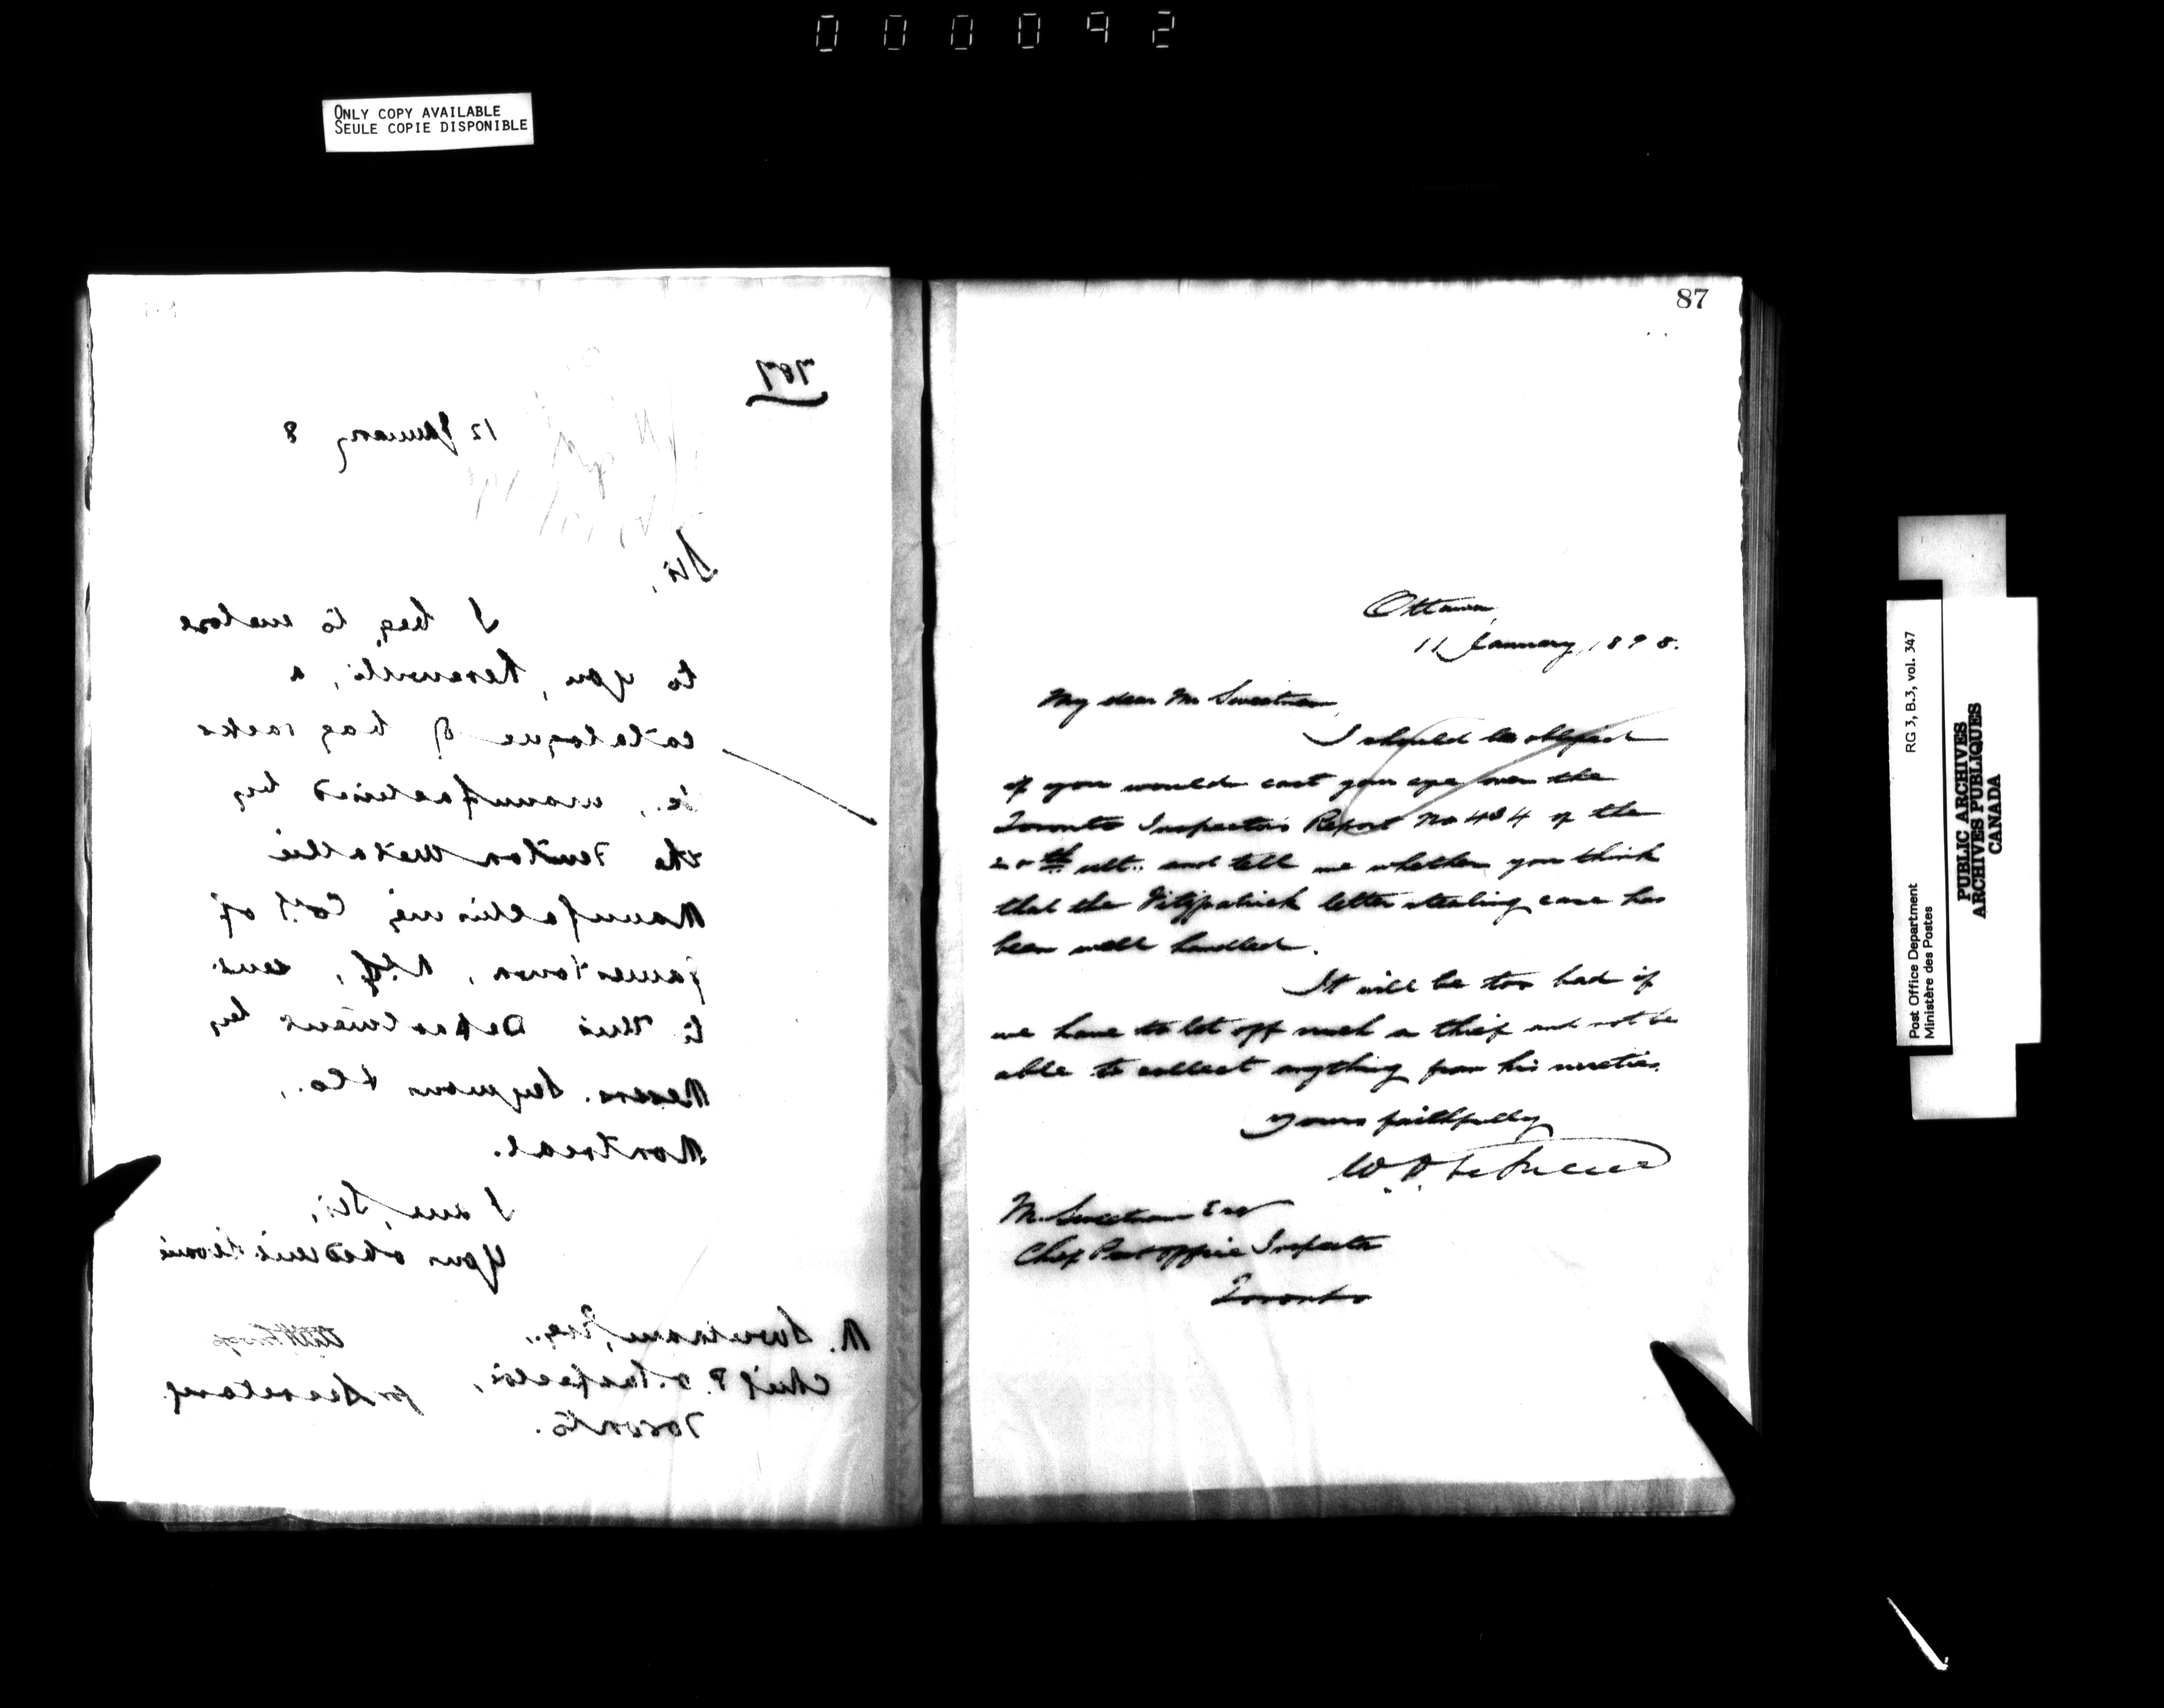 000092
ONLY COPY AVAILABLE
SEULE COPIE DISPONIBLE
707
12 January 8
Sir,
I beg to enclose
to you, herewith, a
catalogue of bag racks
&c., manufactured by
the Fenton Metallic
Manufacturing Co'y of
Jamestown, N.Y., sent
to this Department by
Messrs. Seymour & Co.,
Montreal.
I am, Sir,
Your obedient Servant
M. Sweetnam, Esq.,
Chief P.O. Inspector, for Secretary
Toronto.
87
Ottawa,
11 January 1898.
My dear Mr Sweetnam,
I should be obliged
if you would cast your eye over the
Toronto Inspector's Report No 434 of the
20th ult. and tell me whether you think
that the Fitzpatrick letter stealing case has
been well handled.
It will be too bad if
we have to let off such a thief and not be
able to collect anything from his sureties.
Yours faithfully
W. D. LeSueur
M. Sweetnam Esq
Chief Post Office Inspector
Toronto
RG 3, B.3, vol. 347
Post Office Department
Ministère des Postes
PUBLIC ARCHIVES
ARCHIVES PUBLIQUES
CANADA